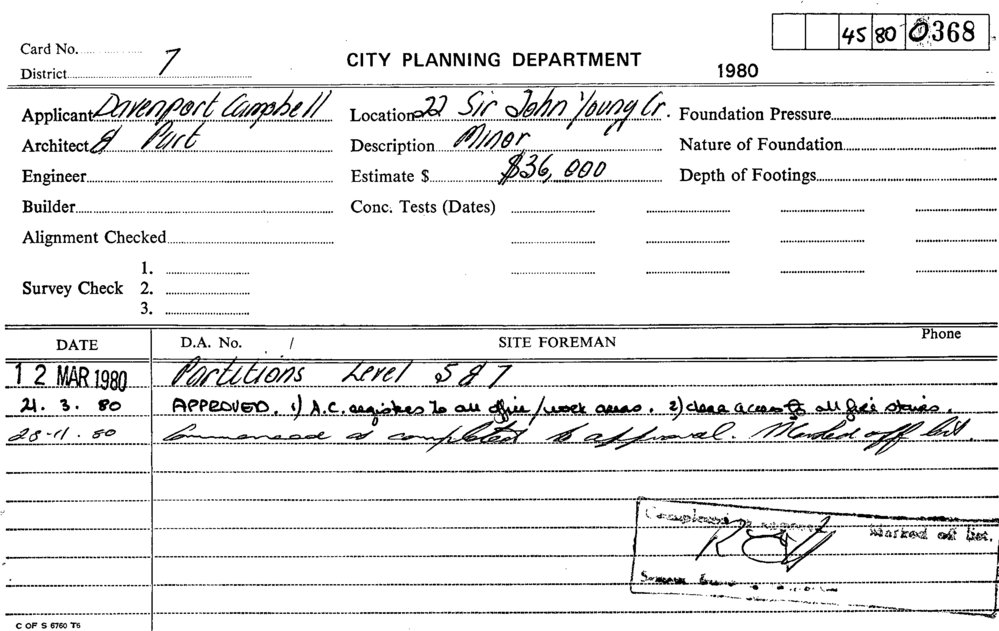 45 80 0368
Card No.
District 7
CITY PLANNING DEPARTMENT
1980
Applicant Davenport Campbell
Location 22 Sir John Young Cr.
Foundation Pressure
Architect & Part
Description Minor
Nature of Foundation
Engineer
Estimate $ $36,000
Depth of Footings
Builder
Conc. Tests (Dates)
Alignment Checked
1.
Survey Check 2.
3.
DATE D.A. No. / SITE FOREMAN Phone
12 MAR 1980 Partitions Level 5 & 7
21. 3. 80 APPROVED. 1) A.C. registres to all office/work areas. 2) clear access to all fire stairs.
28-11. 80 Commenced & completed to approval. Marked off list.
Marked off list.
C OF S 6760 T6